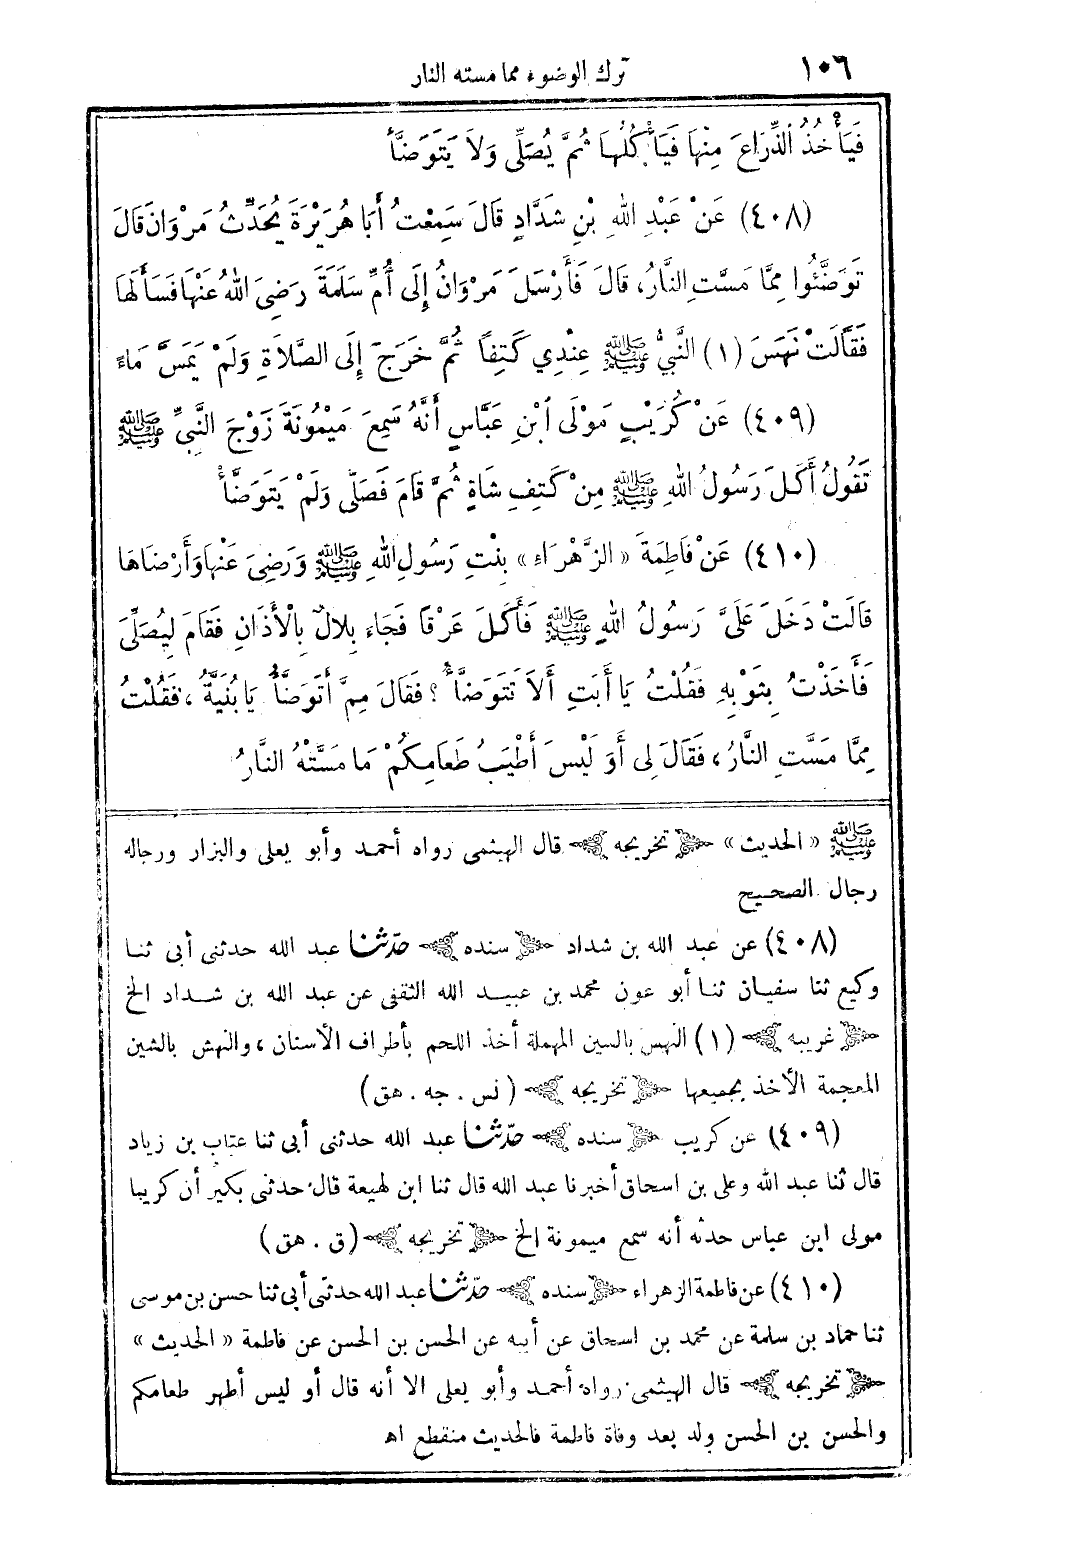 ١٠٦ ترك الوضوء مما مسته النار
فَيَأْخُذُ الذِّرَاعَ مِنْهَا فَيَأْكُلُهَا ثُمَّ يُصَلِّى وَلاَ يَتَوَضَّأُ
(٤٠٨) عَنْ عَبْدِ اللهِ بْنِ شَدَّادٍ قَالَ سَمِعْتُ أَبَا هُرَيْرَةَ يُحَدِّثُ مَرْوَانَ قَالَ
تَوَضَّئُوا مِمَّا مَسَّتِ النَّارُ، قَالَ فَأَرْسَلَ مَرْوَانُ إِلَى أُمِّ سَلَمَةَ رَضِىَ اللهُ عَنْهَا فَسَأَلَهَا
فَقَالَتْ نَهَسَ (١) النَّبِىُّ ﷺ عِنْدِي كَتِفًا ثُمَّ خَرَجَ إِلَى الصَّلاَةِ وَلَمْ يَمَسَّ مَاءً
(٤٠٩) عَنْ كُرَيْبٍ مَوْلَى ابْنِ عَبَّاسٍ أَنَّهُ سَمِعَ مَيْمُونَةَ زَوْجَ النَّبِىِّ ﷺ
تَقُولُ أَكَلَ رَسُولُ اللهِ ﷺ مِنْ كَتِفِ شَاةٍ ثُمَّ قَامَ فَصَلَّى وَلَمْ يَتَوَضَّأْ
(٤١٠) عَنْ فَاطِمَةَ «الزَّهْرَاءِ» بِنْتِ رَسُولِ اللهِ ﷺ وَرَضِىَ عَنْهَا وَأَرْضَاهَا
قَالَتْ دَخَلَ عَلَىَّ رَسُولُ اللهِ ﷺ فَأَكَلَ عَرْقًا فَجَاءَ بِلاَلٌ بِالْأَذَانِ فَقَامَ لِيُصَلِّىَ
فَأَخَذْتُ بِثَوْبِهِ فَقُلْتُ يَا أَبَتِ أَلاَ تَتَوَضَّأُ؟ فَقَالَ مِمَّ أَتَوَضَّأُ يَا بُنَيَّةُ، فَقُلْتُ
مِمَّا مَسَّتِ النَّارُ، فَقَالَ لِى أَوَ لَيْسَ أَطْيَبُ طَعَامِكُمْ مَا مَسَّتْهُ النَّارُ
ﷺ «الحديث» ﴿تخريجه﴾ قال الهيثمى رواه أحمد وأبو يعلى والبزار ورجاله
رجال الصحيح
(٤٠٨) عن عبد الله بن شداد ﴿سنده﴾ حدّثنا عبد الله حدثنى أبى ثنا
وكيع ثنا سفيان ثنا أبو عون محمد بن عبيد الله الثقفى عن عبد الله بن شداد الخ
﴿غريبه﴾ (١) النهس بالسين المهملة أخذ اللحم بأطراف الأسنان، والنهش بالشين
المعجمة الأخذ بجميعها ﴿تخريجه﴾ (نس . جه . هق)
(٤٠٩) عن كريب ﴿سنده﴾ حدّثنا عبد الله حدثنى أبى ثنا عتاب بن زياد
قال ثنا عبد الله وعلى بن اسحاق أخبرنا عبد الله قال ثنا ابن لهيعة قال حدثنى بكير أن كريبا
مولى ابن عباس حدثه أنه سمع ميمونة الخ ﴿تخريجه﴾ (ق . هق)
(٤١٠) عن فاطمة الزهراء ﴿سنده﴾ حدّثنا عبد الله حدثنى أبى ثنا حسن بن موسى
ثنا حماد بن سلمة عن محمد بن اسحاق عن أبيه عن الحسن بن الحسن عن فاطمة «الحديث»
﴿تخريجه﴾ قال الهيثمى رواه أحمد وأبو يعلى الا أنه قال أو ليس أطهر طعامكم
والحسن بن الحسن ولد بعد وفاة فاطمة فالحديث منقطع اه